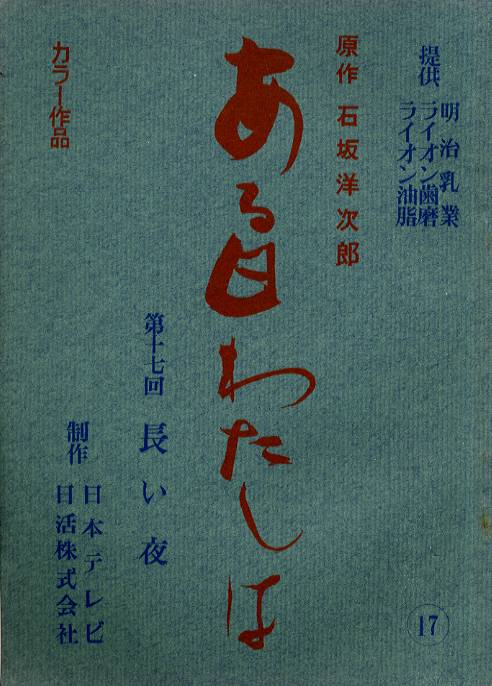 提供 明治乳業
ライオン歯磨
ライオン油脂
原作 石坂洋次郎
ある日わたしは
カラー作品
第十七回 長い夜
制作 日本テレビ
日活株式会社
17